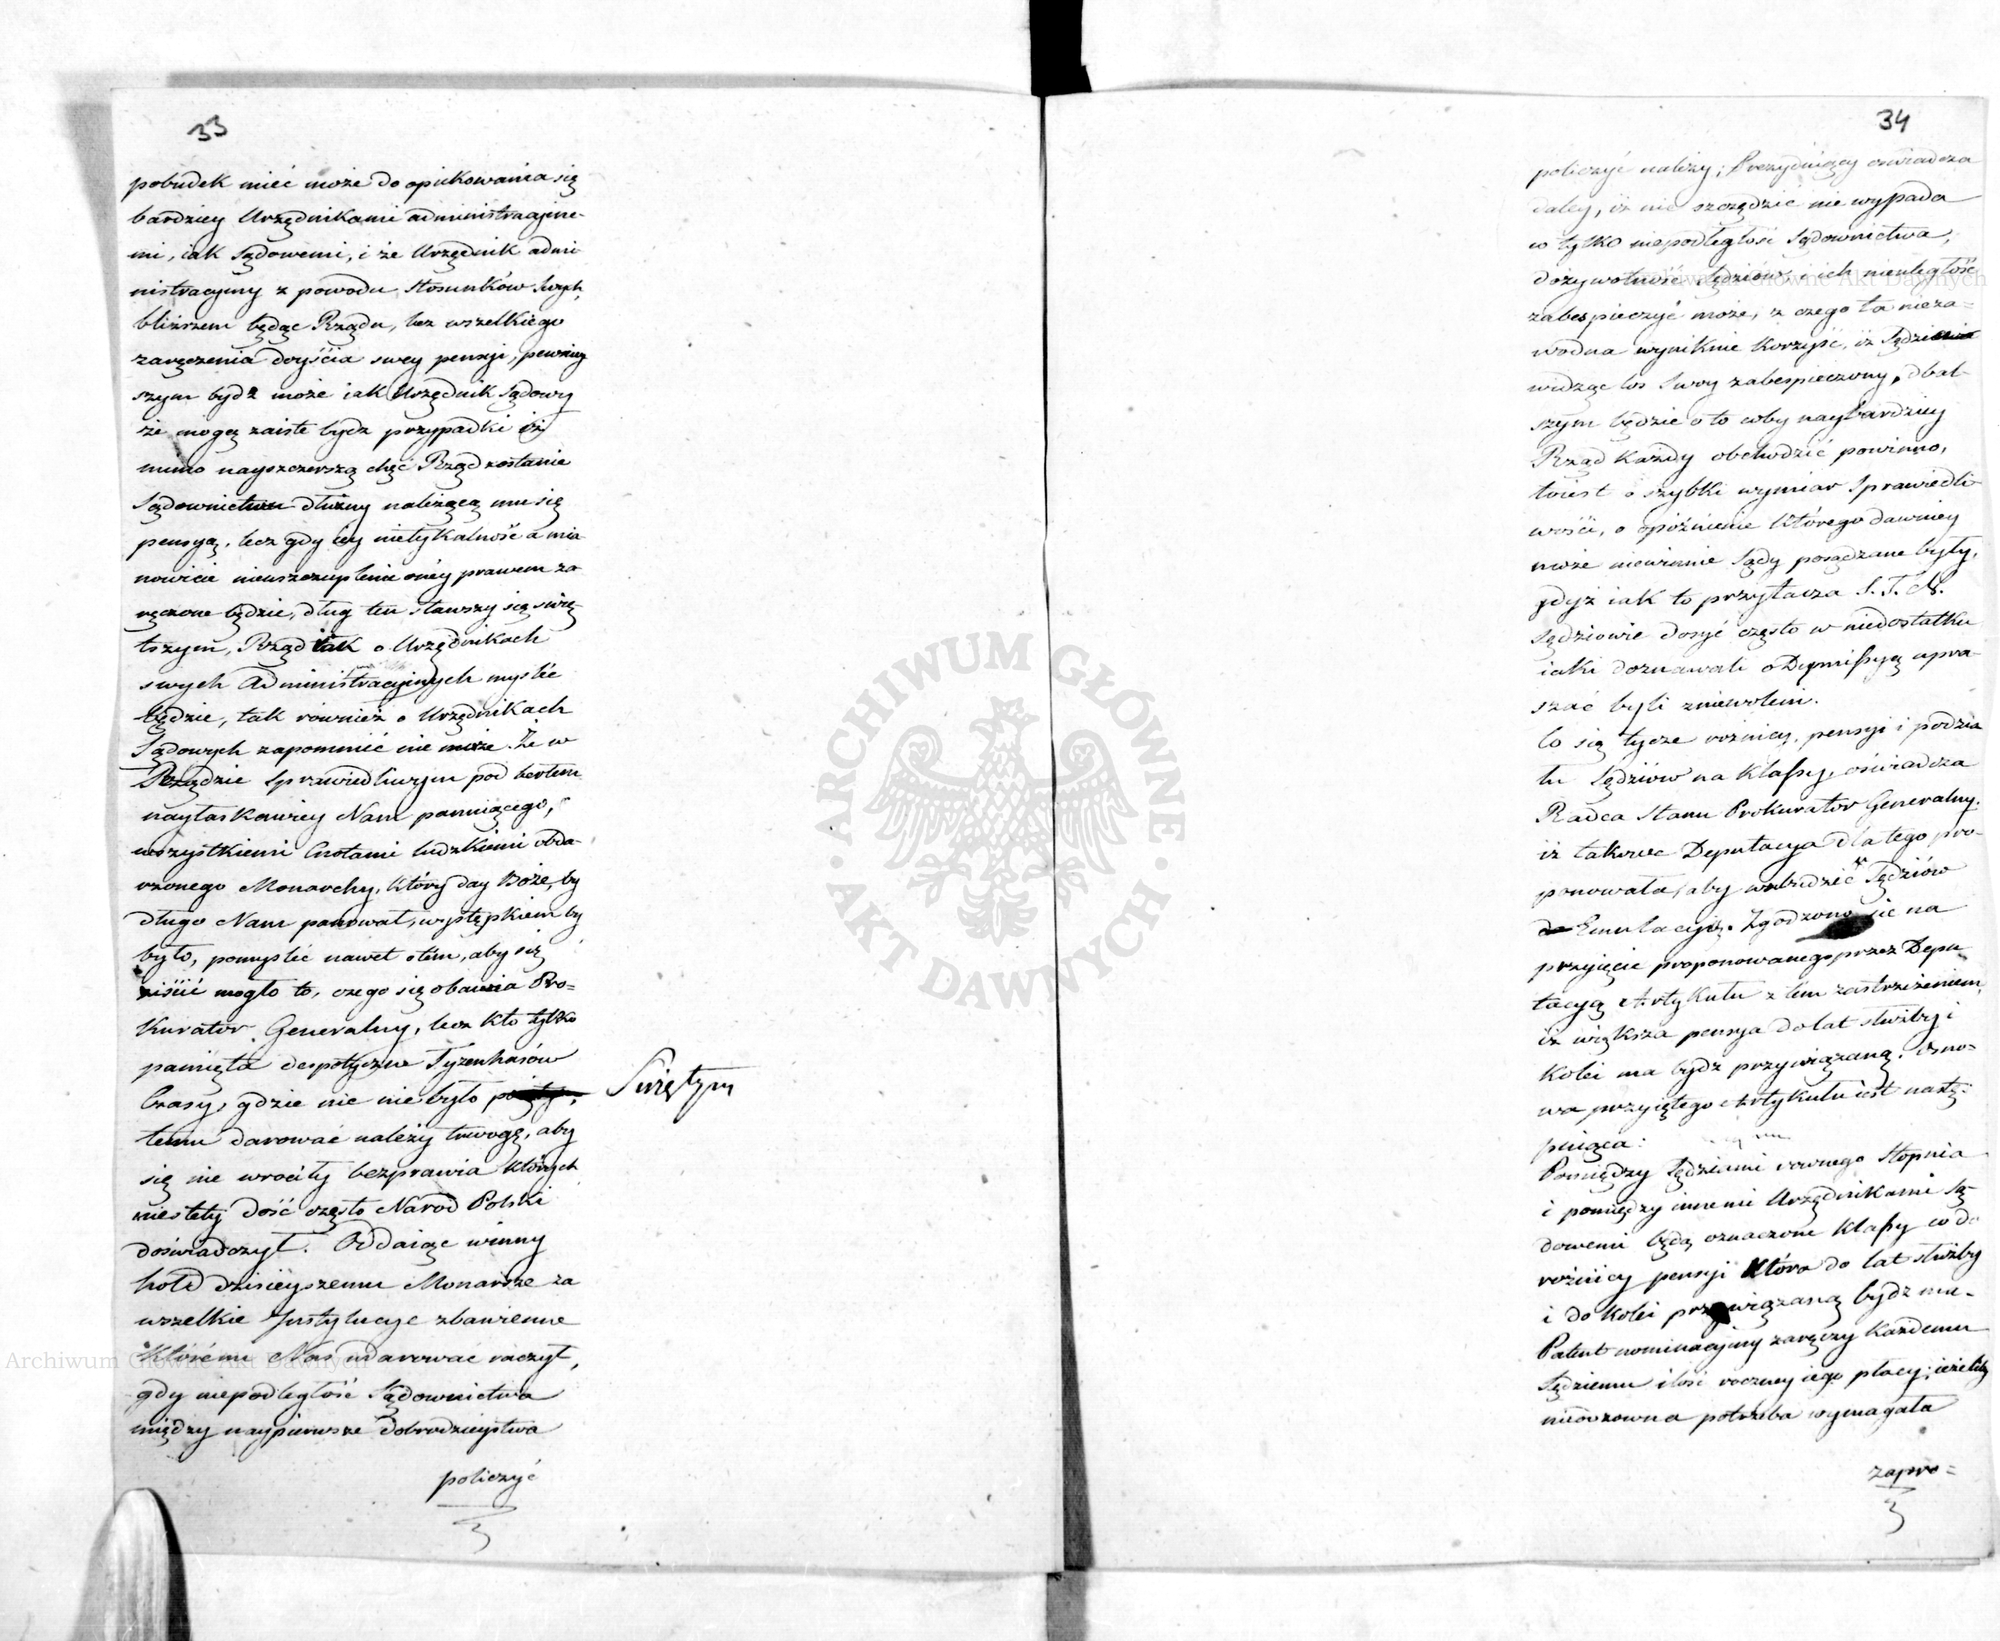 33
pobudek mieć może do opiekowania się
bardziey Urzędnikami administracyjne-
mi, iak Sądowemi, i że Urzędnik admi
nistracyiny z powodu stosunków swych,
bliższem będąc Rządu, bez wszelkiego
zaręczenia doyścia swey pensyi, pewniey
szym bydź może iak Urzędnik Sądowy
że mogą zaiste bydz przypadki iż
mimo nayszczerszą chęć Rząd zostanie
Sądownictwu dłużny należącą mu się
pensyą, lecz gdy iey nietykalność a mia
nowicie nieuszczuplenie oney prawem za
ręczone będzie, dług ten stawszy się świę
tszym, Rząd iak o Urzędnikach
swych Administracyjnych myslić
będzie, tak również o Urzędnikach
Sądowych zapomnieć nie może. Że w
Rządzie sprawiedliwym pod berłem
nayłaskawiey Nam panuiącego,
wszystkiemi Cnotami ludzkiemi obda-
rzonego Monarchy, który day Boże, by
długo Nam panował, występkiem by
było, pomyslić nawet otem, aby się
ziścić mogło to, czego się obawia Pro=
kurator Generalny, lecz kto tylko
pamięta despotyczne Tyzenhasów
Czasy, gdzie nic nie było
Swiętym
temu darować należy trwogę, aby
się nie wrociły bezprawia których
niestety dość często Naród Polski
doświadczył. Oddaiąc winny
hołd dzisieyszemu Monarsze za
wszelkie Instytucye zbawienne
któremi Nas udarować raczył,
gdy niepodległość Sądownictwa
między naypierwsze dobrodzieystwa
policzyć
34
policzyć należy; Prezyduiący oswiadcza
daley, iż nic szczędzić nie wypada
co tylko niepodległość Sądownictwa,
dożywotność Sędziów i ich nieuległość
zabespieczyć może, z czego ta nieza=
wodna wyniknie korzyść, iż Sędzia
widząc los swoy zabespieczony, dbal-
szym będzie o to coby naybardziey
Rząd każdy obchodzić powinno,
toiest o szybki wymiar Sprawiedli-
wości, o opóźnienie którego dawniey
może niewinnie Sądy posądzane były,
gdyż iak to przytacza S. T. N.
Sędziowie dosyć często w niedostatku
iaki doznawali o Dymissyą upra-
szać byli zniewoleni.
Co się tycze rożnicy, pensyi i podzia
łu Sędziów na klassy, oświadcza
Radca Stanu Prokurator Generalny.
iż takowe Deputacya dlatego pro-
ponowała, aby wzbudzić w Sędziów
Emulacyią. Zgodzono się na
przyięcie proponowanego przez Depu
tacyą Artykułu z tem zastrzeżeniem,
iż większa pensya do lat służby i
kolei ma bydz przywiązaną. Osno-
wa przyiętego Artykułu iest nastę=
puiąca:
Pomiędzy Sędziami rownego Stopnia
i pomiędzy innemi Urzędnikami Są-
dowemi będą oznaczone klassy co do
rożnicy pensyi która do lat służby
i do kolei przywiązaną bydz ma.
Patent nominacyiny zaręczy każdemu
Sędziemu ilość roczney iego płacy; ieżeliby
nieodzowna potrzeba wymagała
zapro=
ARCHIWUM GŁÓWNE AKT DAWNYCH
Archiwum Główne Akt Dawnych
Archiwum Główne Akt Dawnych